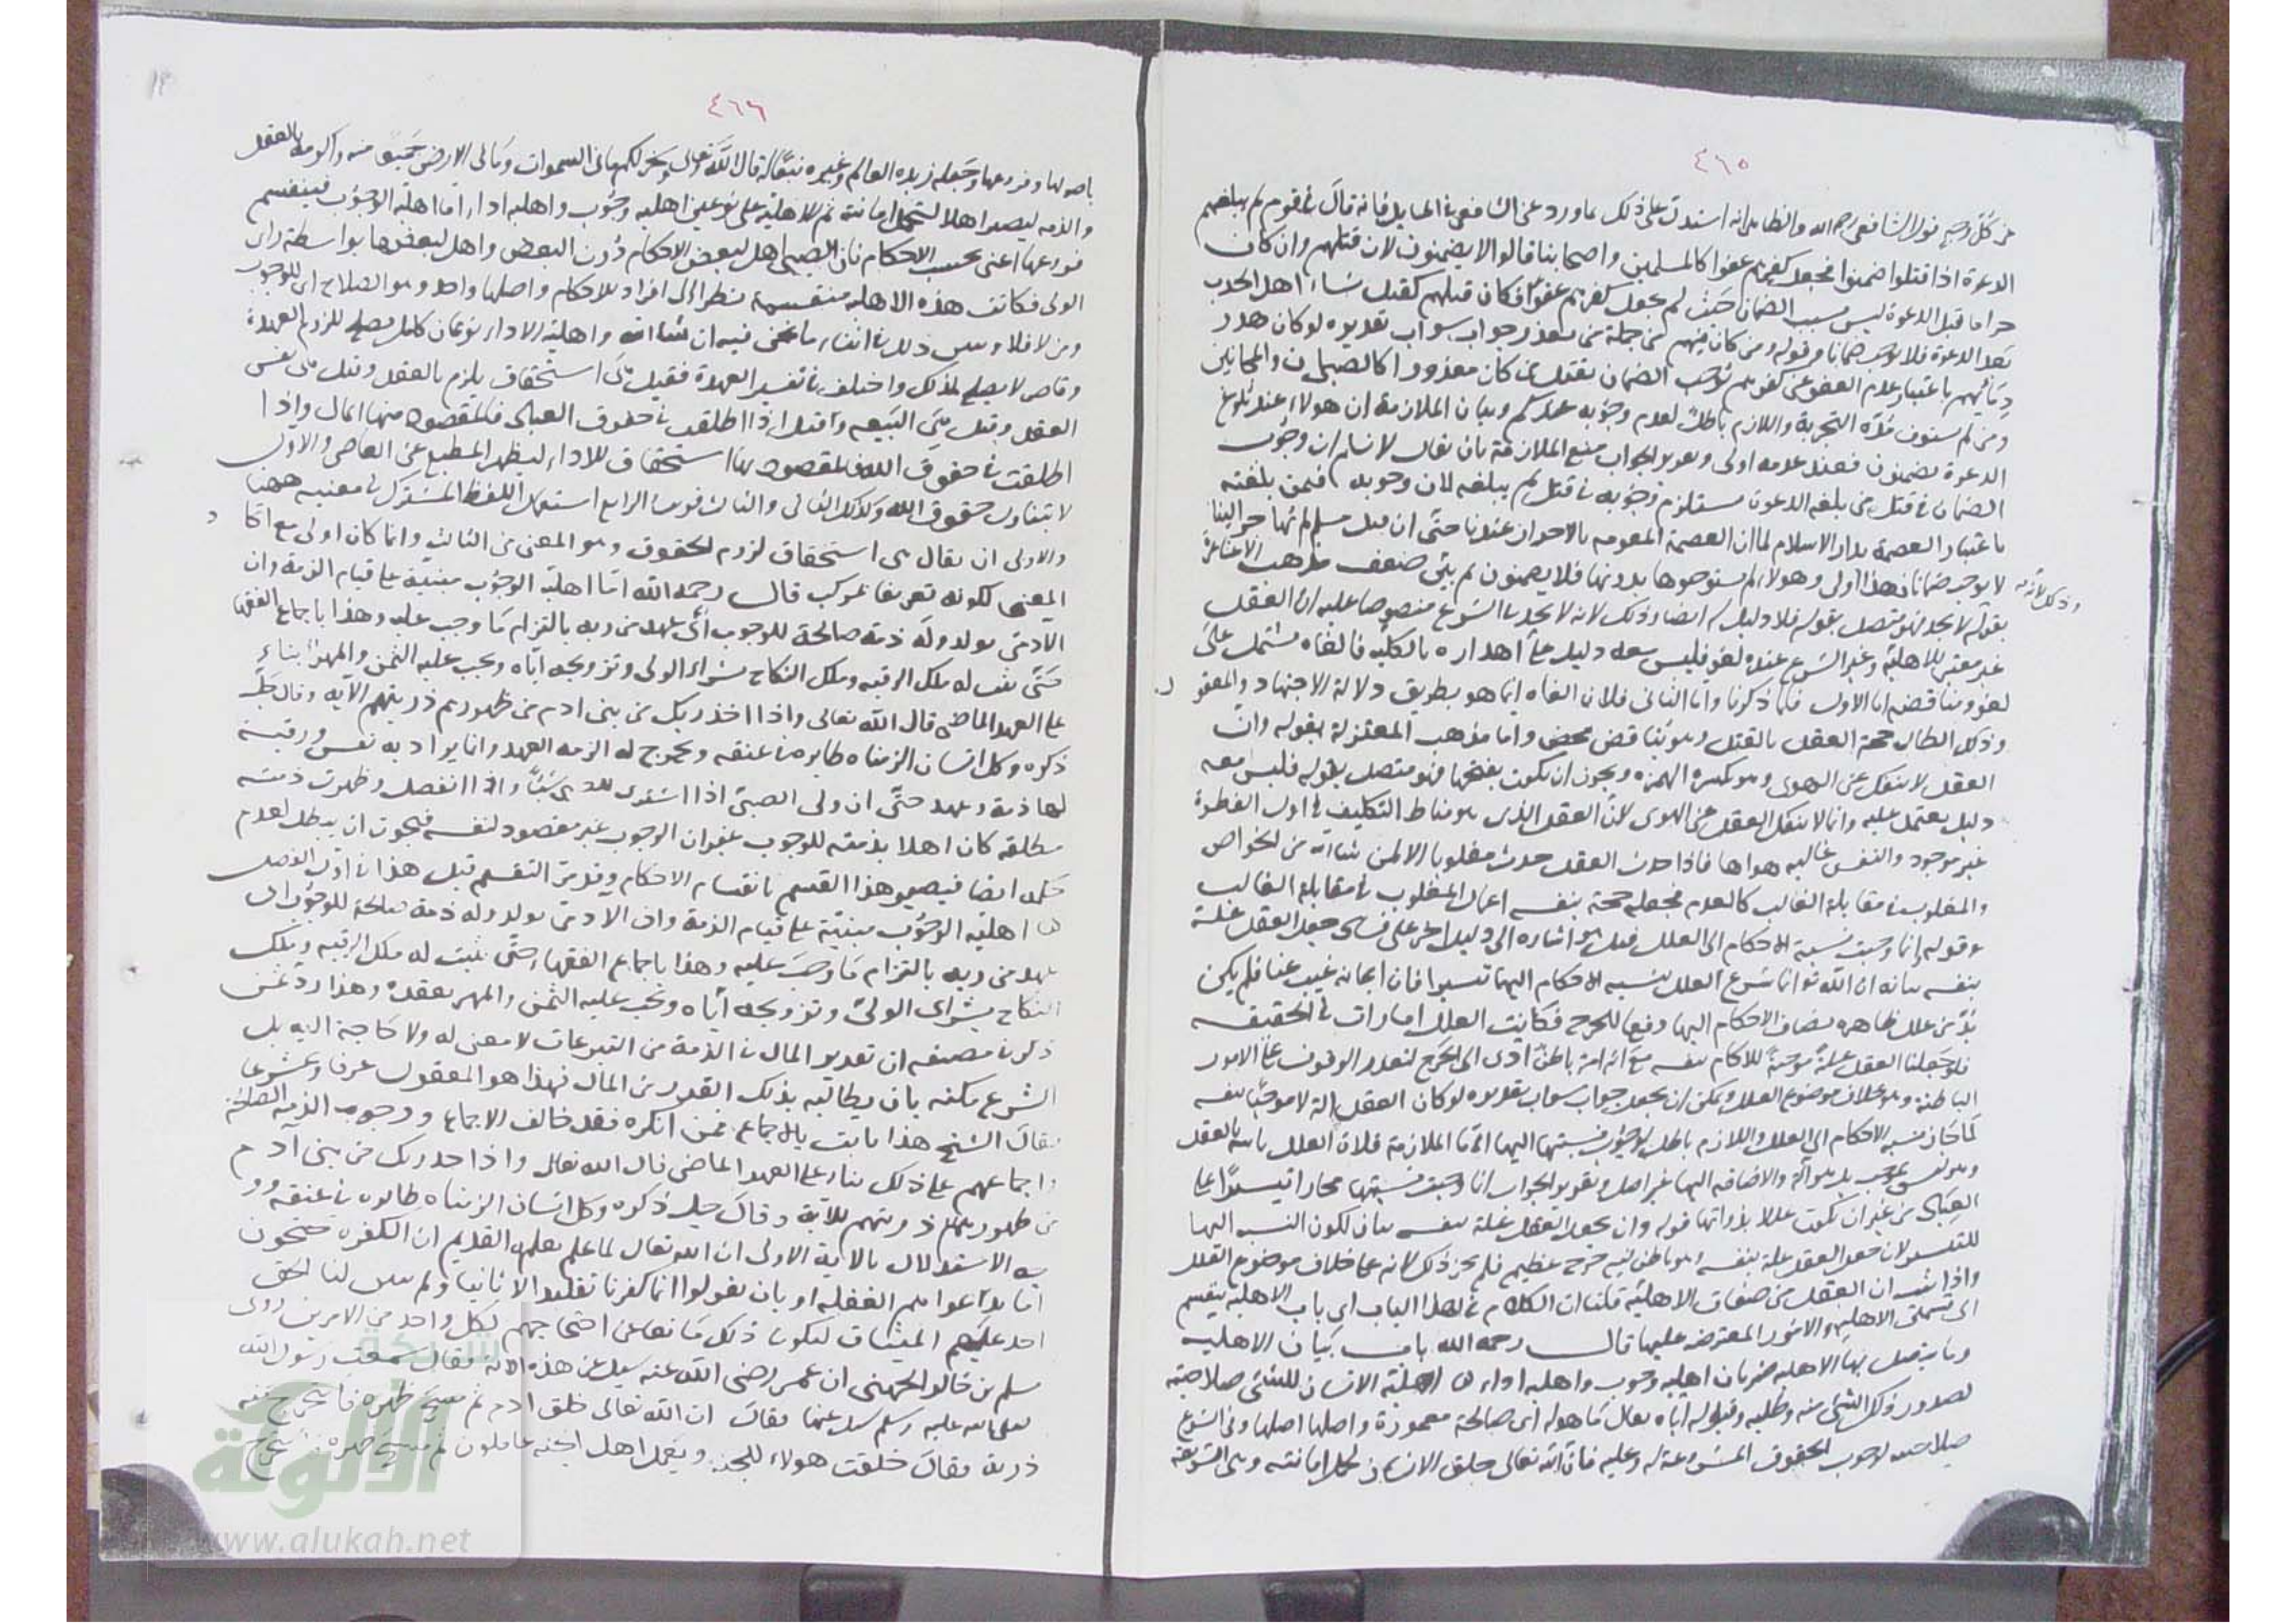 ٤٦٥
من كل وجه قول الشافعي رحمه الله والظاهر انه استدل على ذلك بما ورد عن الشافعي في المسايل فانه قال في قوم لم يبلغهم
الدعوة اذا قتلوا ضمنوا فجعل كفرهم عفوا كالمسلمين واصحابنا قالوا لا يضمنون لان قتلهم وان كان
حراما قبل الدعوة ليس بسبب الضمان حيث لم يجعل كفرهم عفوا فكان قتلهم كقتل نساء اهل الحرب
بعد الدعوة فلا يوجب ضمانا وقوله ومن كان فيهم من جملة من يعذر جواب سوال تقديره لو كان هدر
دمائهم باعتبار عدم العفو عن كفرهم لوجب الضمان بقتل من كان معذورا كالصبيان والمجانين
ومن لم يستوف مدة التجربة واللازم باطل لعدم وجوبه عندكم وبيان الملازمة ان هولاء عند بلوغ
الدعوة يضمنون فعند عدمه اولى وتقرير الجواب منع الملازمة بان يقال لا نسلم ان وجوب
الضمان في قتل من بلغه الدعوة مستلزم وجوبه في قتل لم يبلغه لان وجوبه فيمن بلغته
باعتبار العصمة بدار الاسلام لما ان العصمة المقومة بالاحراز عندنا حتى ان قتل مسلم لم يهاجر الينا
لا يوجب ضمانا فهذا اولى وهولاء لم يستوجبوها بدونها فلا يضمنون ثم بين ضعف مذهب الاشاعرة
وذلك لانه
بقوله لا يجد فهو متصل بقوله فلا دليل له ايضا وذلك لانه لا يجد في الشرع منصوصا عليه ان العقل
غير معتبر للاهلية وغير الشرع عنده لغو فليس معه دليل على اهداره بالكلية فالغاه مشتمل على
لغو ومناقضة اما الاول فلما ذكرنا واما الثاني فلان الغاه انما هو بطريق دلالة الاجتهاد والمعقول
وذلك ابطال حجة العقل بالعقل وهو تناقض محض واما مذهب المعتزلة بقوله وان
العقل لا ينفك عن الهوى وهو بكسر الهمزة ويجوز ان يكون بفتحها فهو متصل بقوله فليس معه
دليل يعتمد عليه وانما لا ينفك العقل عن الهوى لان العقل الذي هو مناط التكليف في اول الفطرة
غير موجود والنفس غالبة هواها فاذا حدث العقل حدث مغلوبا الا لمن شاء الله من الخواص
والمغلوب في مقابلة الغالب كالعدم فجعله حجة بنفسه اعمال المغلوب في مقابلة الغالب
وقوله وانما وجبت نسبة الاحكام الى العلل قيل هو اشارة الى دليل اخر على فساد جعل العقل علة
بنفسه بيانه ان الله تعالى انما شرع العلل نسبة الاحكام اليها تيسيرا فان ايجابه غيب عنا فلم يكن
بد من علل ظاهرة يضاف الاحكام اليها دفعا للحرج فكانت العلل امارات في الحقيقة
فلو جعلنا العقل علة موجبة للاحكام بنفسه مع انه امر باطن ادى الى الحرج لتعذر الوقوف على الامور
الباطنة وهو خلاف موضوع العلل ويمكن ان يجعل جواب سوال تقديره لو كان العقل الة لا موجبا بنفسه
لما جاز نسبة الاحكام الى العلل واللازم باطل لوجوب نسبتها اليها اما الملازمة فلان العلل ثابتة بالعقل
وهو ليس بموجب بل هو آلة والاضافة اليها غير اصل وتقرير الجواب انما وجبت نسبتها مجازا تيسيرا على
العباد من غير ان تكون عللا بذواتها قوله وان يجعل العقل علة بنفسه بيان لكون النسبة اليها
للتيسير لان جعل العقل علة بنفسه وهو باطن فيه حرج عظيم فلم يجز ذلك لانه على خلاف موضوع العلل
واذا ثبت ان العقل من صفات الاهلية قلنا ان الكلام في هذا الباب اي باب الاهلية ينقسم
الى قسمين الاهلية والامور المعترضة عليها قال رحمه الله باب بيان الاهلية
وما يتصل بها الاهلية ضربان اهلية وجوب واهلية اداء اهلية الانسان للشئ صلاحيته
لصدور ذلك الشئ منه وطلبه وقبوله اياه يقال ما هو له اي صالحة معمورة واصلها اصلها وفي الشرع
صلاحيته لوجوب الحقوق المشروعة له وعليه فان الله تعالى خلق الانسان لحمل امانته وهي الشريعة
٤٦٦
باصولها وفروعها وجعله زبدة العالم وغيره تبعا له قال الله تعالى وسخر لكم ما في السموات وما في الارض جميعا منه واكرمه بالعقل
والذمة ليصير اهلا لتحمل امانته ثم الاهلية على نوعين اهلية وجوب واهلية اداء اما اهلية الوجوب فينقسم
فروعها اعني بحسب الاحكام فان الصبي اهل لبعض الاحكام دون البعض واهل لبعضها بواسطة راي
الولي فكانت هذه الاهلية منقسمة نظرا الى افراد الاحكام واصلها واحد وهو الصلاح اي للوجوب
ومن لا فلا وسنبين ذلك في اثناء ما نحن فيه ان شاء الله واهلية الاداء نوعان كامل يصلح للزوم العهدة
وقاصر لا يصلح لذلك واختلف في تفسير العهدة فقيل هي استحقاق يلزم بالعقل وقيل هي نفس
العقل وقيل هي التبعة وقيل اذا اطلقت في حقوق العباد فالمقصود منها المال واذا
اطلقت في حقوق الله فالمقصود بها استحقاق للاداء ليظهر المطيع عن العاصي والاول
لا يتناول حقوق الله وكذلك الثاني والثالث وفي الرابع استعمال اللفظ المشترك في معنييه ههنا
والاولى ان يقال هي استحقاق لزوم الحقوق وهو المعنى من الثالث وانما كان اولى مع اتحاد
المعنى لكونه تعريفا بمركب قال رحمه الله اما اهلية الوجوب مبنية على قيام الذمة وان
الادمي يولد وله ذمة صالحة للوجوب اي عهد من ربه بالتزام ما وجب عليه وهذا باجماع الفقهاء
حتى يثبت له ملك الرقبة وملك النكاح بشراء الولي وتزويجه اياه ويجب عليه الثمن والمهر بناء
على العهد الماضي قال الله تعالى واذا اخذ ربك من بني ادم من ظهورهم ذريتهم الآية وقال جل
ذكره وكل انسان الزمناه طايره في عنقه ويخرج له الزمه العهد وانما يراد به نفس ورقبة
لها ذمة وعهد حتى ان ولي الصبي اذا اشترى للصبي شيئا واذا انفصل وظهرت ذمته
مطلقة كان اهلا بذمته للوجوب غير ان الوجوب غير مقصود لنفسه فيجوز ان يبطل لعدم
حكمه ايضا فيصير هذا القسم بانقسام الاحكام وقد مر التقسيم قبل هذا في اول الفصل
اهلية الوجوب مبنية على قيام الذمة وان الادمي يولد وله ذمة صالحة للوجوب اي
عهد من ربه بالتزام ما وجب عليه وهذا باجماع الفقهاء حتى يثبت له ملك الرقبة وملك
النكاح بشراء الولي وتزويجه اياه وتجب عليه الثمن والمهر بعقده وهذا رد عمن
ذكر في مصنفه ان تقدير المال في الذمة من الترهات لا معنى له ولا حاجة اليه بل
الشرع مكنه بان يطالبه بذلك القدر من المال فهذا هو المعقول عرفا وشرعا
فقال الشيخ هذا ثابت بالاجماع فمن انكره فقد خالف الاجماع ووجوب الذمة الصالحة
واجماعهم على ذلك بناء على العهد الماضي قال الله تعالى واذ اخذ ربك من بني آدم
من ظهورهم ذريتهم الآية وقال جل ذكره وكل انسان الزمناه طائره في عنقه
الاستدلال بالاية الاولى ان الله تعالى لما علم بعلمه القديم ان الكفرة يحتجون
اما بدعواهم الغفلة او بان يقولوا انا كفرنا تقليدا لابائنا ولم يبين لنا الحق
اخذ عليهم الميثاق ليكون ذلك مانعا عن احتجاجهم لكل واحد من الامرين روى
مسلم بن خالد الجهني ان عمر رضي الله عنه سيل عن هذه الاية فقال سمعت رسول الله
صلى الله عليه وسلم سئل عنها فقال ان الله تعالى خلق ادم ثم مسح ظهره فاستخرج منه
ذرية فقال خلقت هولاء للجنة وبعمل اهل الجنة يعملون ثم مسح ظهره فاستخرج
شبكة
الألوكة
www.alukah.net